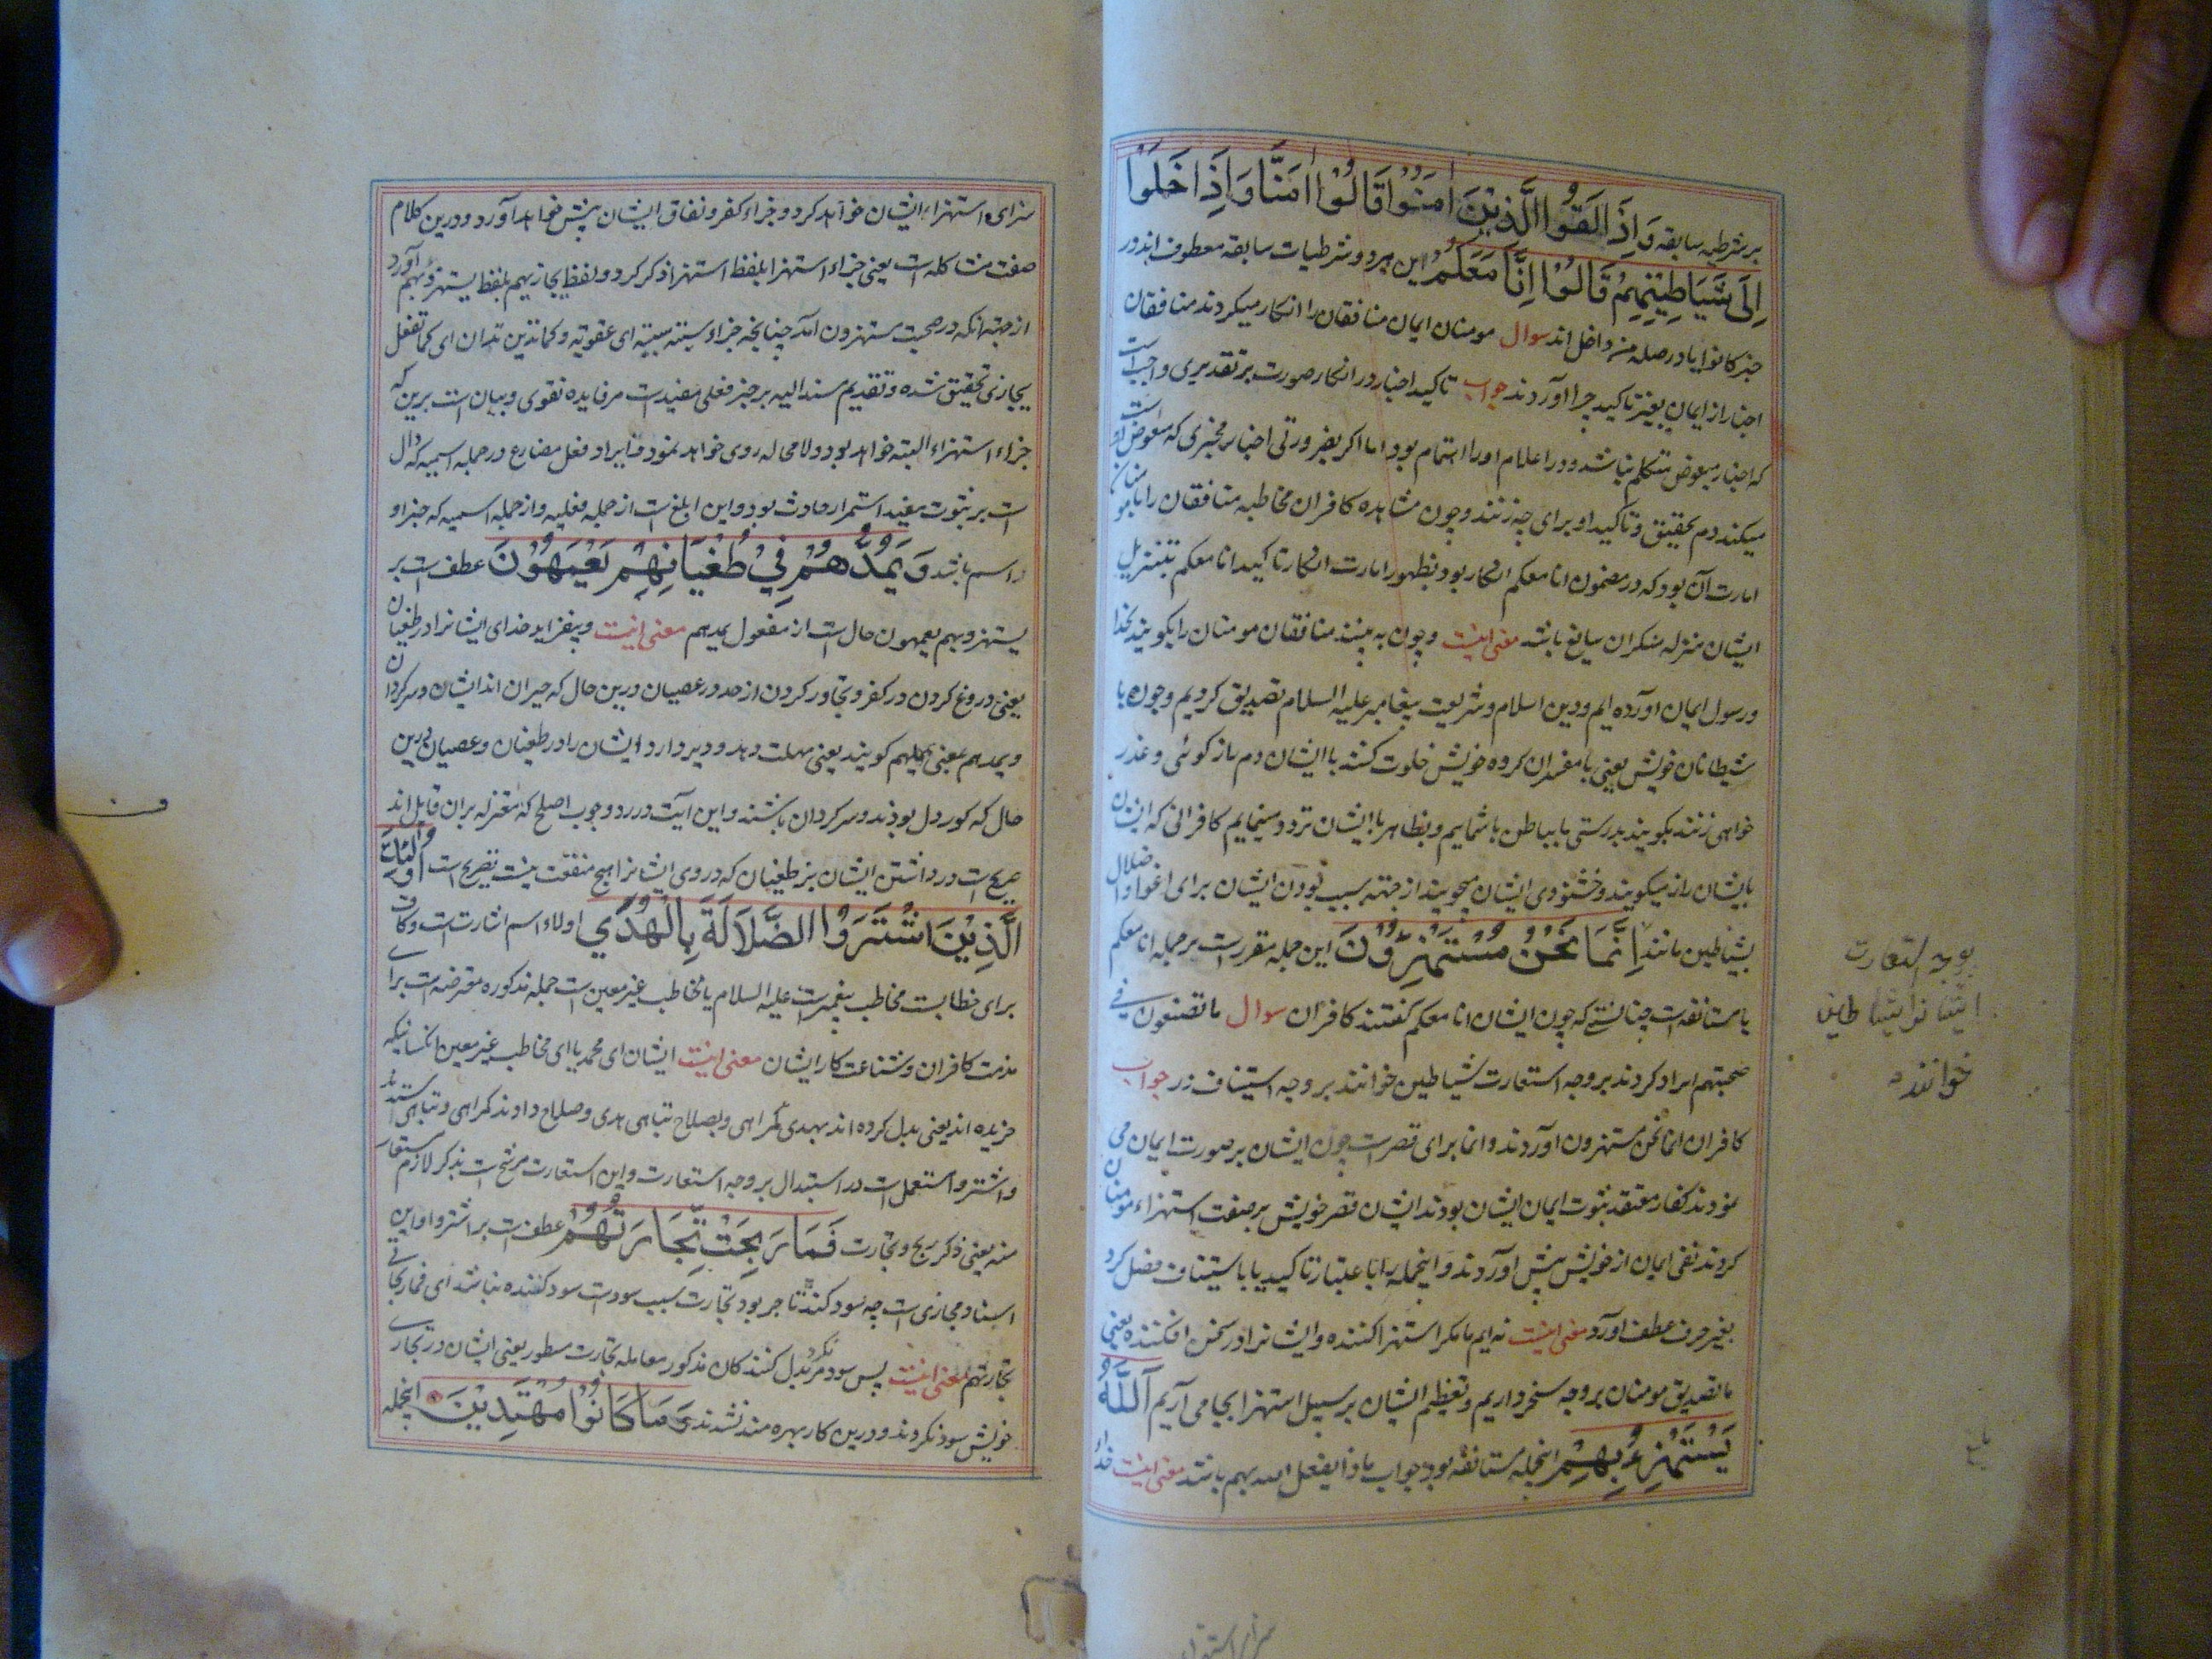 بر شرطیه سابقه وَاِذَا لَقُوا الَّذِيْنَ اٰمَنُوْا قَالُوْا اٰمَنَّا وَاِذَا خَلَوْا
اِلٰى شَيَاطِيْنِهِمْ قَالُوْا اِنَّا مَعَكُمْ این هر دو شرطیات سابقه معطوف اند و در
خبر کانوا یا در صله من داخل اند سوال مومنان ایمان منافقان را انکار میکردند منافقان
اخبار از ایمان بغیر تاکید چرا آوردند جواب تاکید اخبار در انکار صورت بر تقدیری واجب است
که اخبار متکلم باشد و در اعلام او را اهتمام بود اما اکر بضرورتی اخبار مخبری که
میکند دم تحقیق و تاکید او برای چه زنند و چون مشاهده کافران مخاطبه منافقان را با مومنان
امارت آن بود که در مضمون انا معکم انکار بود بظهور امارت انکار تاکید انا معکم بتنزیل
ایشان منزله منکران سایغ باشد معنی اینست و چون به بینند منافقان مومنان را بکویند بخدا
و رسول ایمان آورده ایم و دین اسلام و شریعت پیغامبر علیه السلام تصدیق کردیم و چون با
شیطانان خویش یعنی با مفسدان کروه خویش خلوت کنند با ایشان دم باز کوئی و عذر
خواهی زنند بکویند بدرستی ما بباطن با شماییم و بظاهر با ایشان تردد مینمایم کافرانی که ایشان
بایشان راز میکویند و خشنودی ایشان میجویند از جهته سبب بودن ایشان برای اغوا و اضلال
بشیاطین مانند اِنَّمَا نَحْنُ مُسْتَهْزِؤُنَ این جمله مقررست بر جمله انا معکم
یا مستانفه است چنانستی که چون ایشان انا معکم کفتند کافران سوال ما تصنعون فی
صحبتهم ایراد کردند بر وجه استعارت شیاطین خوانند بر وجه استیناف در جواب
کافران انما نحن مستهزون آوردند و انما برای قصرست چون ایشان بر صورت ایمان می
نمودند کفار معتقد ثبوت ایمان ایشان بودند ایشان قصر خویش بر صفت استهزاء مومنان
کردند نفی ایمان از خویش پیش آوردند و اینجمله را با عتبار تاکید یا باستیناف فصل کرد
بغیر حرف عطف آورد معنی اینست نه ایم ما مکر استهزا کننده و ایشانرا در سخن افکننده یعنی
ما تصدیق مومنان بر وجه سخر داریم و تعظیم ایشان بر سبیل استهزا بجا می آریم اَللّٰهُ
يَسْتَهْزِئُ بِهِمْ اینجمله مستانفه بود جواب ماذا یفعل الله بهم باشد معنی اینست خدا
بوجه استعارت
ایشانرا شیاطین
خوانند
سزای استهزاء ایشان خواهد کرد و جزاء کفر و نفاق ایشان پیش خواهد آورد و درین کلام
صفت مشاکله است یعنی جزاء استهزا بلفظ استهزا ذکر کرد و لفظ یجازیهم بلفظ یستهزؤ بهم آورد
از جهته آنکه در صحبت مستهزون آمد چنانچه جزاء سیئه سیئه ای عقوبته و کما تدین تدان ای کما تفعل
یجازی تحقیق شده و تقدیم مسند الیه بر خبر فعلی مفیدست مر فایده تقوی و بیان است برین که
جزاء استهزاء البته خواهد بود و لا محاله روی خواهد نمود و ایراد فعل مضارع در جمله اسمیه که دال
است بر ثبوت مفید استمرار حادث بود و این ابلغ است از جمله فعلیه و از جمله اسمیه که خبر او
اسم باشد وَيَمُدُّهُمْ فِيْ طُغْيَانِهِمْ يَعْمَهُوْنَ عطف است بر
یستهزؤ بهم یعمهون حال است از مفعول یمدهم معنی اینست و بیفزاید خدای ایشانرا در طغیان
یعنی دروغ کردن در کفر و تجاوز کردن از حد در عصیان درین حال که حیران اند ایشان و سرکردان
و یمدهم بمعنی یمهلهم کویند یعنی مهلت دهد و دیر دارد ایشان را در طغیان و عصیان درین
حال که کور دل بوند و سر کردان باشند و این آیت در رد وجوب اصلح که معتزله بران قایل اند
صریح است و در داشتن ایشان بر طغیان که در وی ایشانرا هیچ منفعت نیست تصریح است اُولٰئِكَ
الَّذِيْنَ اشْتَرَوُا الضَّلَالَةَ بِالْهُدٰي اولاء اسم اشارت است و کاف
برای خطابست مخاطب پیغمبرست علیه السلام یا مخاطب غیر معین است جمله مذکوره معترضه است برای
مذمت کافران و شناعت کار ایشان معنی اینست ایشان ای محمد یا ای مخاطب غیر معین آنکسانیکه
خریده اند یعنی بدل کرده اند بهدی کمراهی و بصلاح تباهی هدی و صلاح دادند کمراهی و تباهی ستدند
و اشتروا مستعمل است در استبدال بر وجه استعارت و این استعارت مرشح است بذکر لازم مستعار
منه یعنی ذکر ربح و تجارت فَمَا رَبِحَتْ تِّجَارَتُهُمْ عطف است بر اشتروا و این
اسناد مجازی است چه سود کننده تاجر بود تجارت سبب سودست سود کننده نباشد ای فما ربحوا فی
تجارتهم معنی اینست پس سود نکرد مر بدل کنندکان مذکور معامله تجارت مسطور یعنی ایشان در تجارت
خویش سود نکردند و درین کار بهره مند نشدند وَمَا كَانُوْا مُهْتَدِيْنَ اینجمله